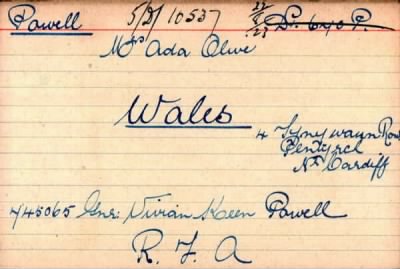 Powell 5/D/10537 22/8/23 Dr. 640 P.
Mrs Ada Olive
Wales
4 Tynywaun Row
Pentyrch
Nr Cardiff
745065 Gnr: Vivian Keen Powell
R. F. A